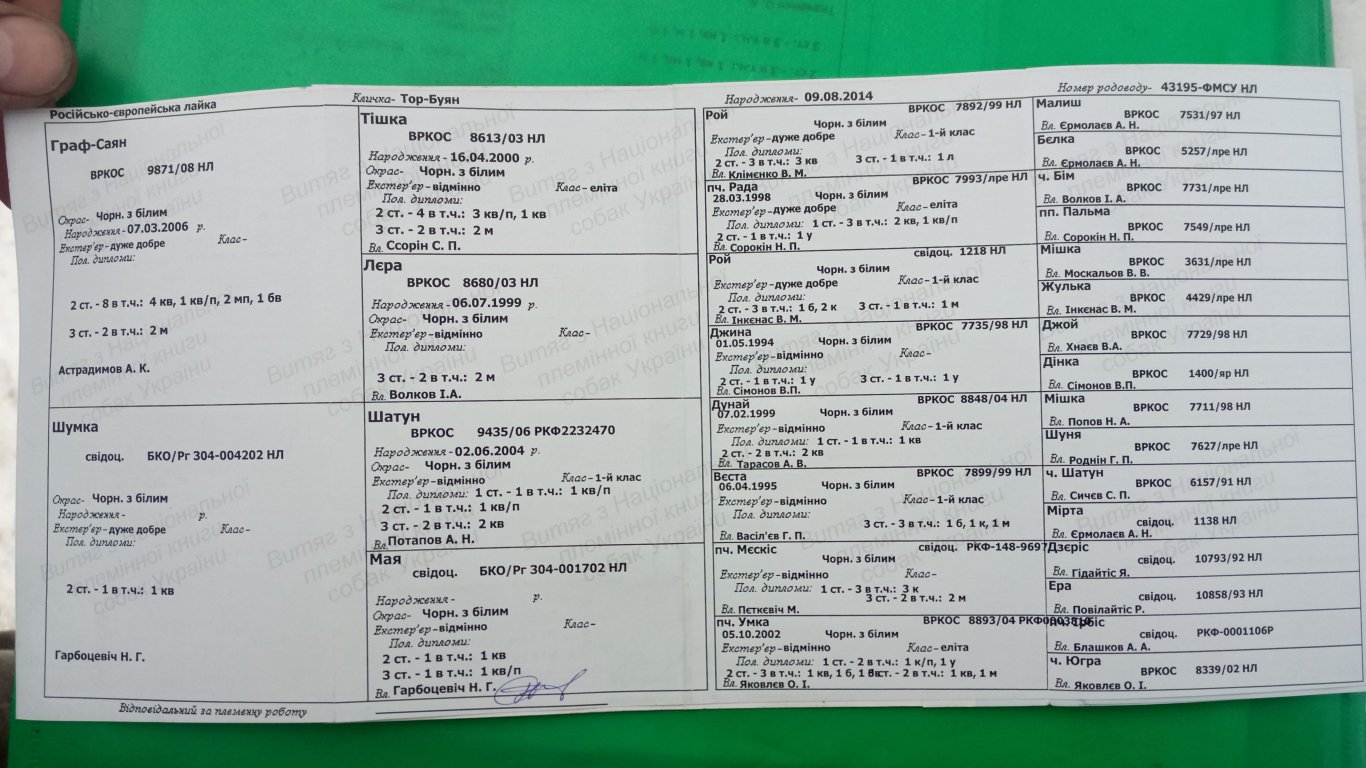 Російсько-європейська лайка
Кличка- Тор-Буян
Народження- 09.08.2014
Номер родоводу- 43195-ФМСУ НЛ
Граф-Саян
ВРКОС 9871/08 НЛ
Окрас- Чорн. з білим
Народження - 07.03.2006 р.
Екстер'єр-дуже добре Клас-
Пол. дипломи:
2 ст. - 8 в т.ч.: 4 кв, 1 кв/п, 2 мп, 1 бв
3 ст. - 2 в т.ч.: 2 м
Астрадимов А. К.
Шумка
свідоц. БКО/Рг 304-004202 НЛ
Окрас- Чорн. з білим
Народження - р.
Екстер'єр-дуже добре Клас-
Пол. дипломи:
2 ст. - 1 в т.ч.: 1 кв
Гарбоцевіч Н. Г.
Тішка
ВРКОС 8613/03 НЛ
Народження - 16.04.2000 р.
Окрас- Чорн. з білим
Екстер'єр-відмінно Клас-еліта
Пол. дипломи:
2 ст. - 4 в т.ч.: 3 кв/п, 1 кв
3 ст. - 2 в т.ч.: 2 м
Вл. Ссорін С. П.
Лєра
ВРКОС 8680/03 НЛ
Народження - 06.07.1999 р.
Окрас- Чорн. з білим
Екстер'єр-відмінно Клас-
Пол. дипломи:
3 ст. - 2 в т.ч.: 2 м
Вл. Волков І.А.
Шатун
ВРКОС 9435/06 РКФ2232470
Народження - 02.06.2004 р.
Окрас- Чорн. з білим
Екстер'єр-відмінно Клас-1-й клас
Пол. дипломи: 1 ст. - 1 в т.ч.: 1 кв/п
2 ст. - 1 в т.ч.: 1 кв/п
3 ст. - 2 в т.ч.: 2 кв
Вл. Потапов А. Н.
Мая
свідоц. БКО/Рг 304-001702 НЛ
Народження - р.
Окрас- Чорн. з білим
Екстер'єр-відмінно Клас-
Пол. дипломи:
2 ст. - 1 в т.ч.: 1 кв
3 ст. - 1 в т.ч.: 1 кв/п
Вл. Гарбоцевіч Н. Г.
Рой ВРКОС 7892/99 НЛ
Чорн. з білим
Екстер'єр-дуже добре Клас-1-й клас
Пол. дипломи:
2 ст. - 3 в т.ч.: 3 кв 3 ст. - 1 в т.ч.: 1 л
Вл. Клімєнко В. М.
пч. Рада ВРКОС 7993/лре НЛ
28.03.1998 Чорн. з білим
Екстер'єр-дуже добре Клас-еліта
Пол. дипломи: 1 ст. - 3 в т.ч.: 2 кв, 1 кв/п
2 ст. - 1 в т.ч.: 1 у
Вл. Сорокін Н. П.
Рой свідоц. 1218 НЛ
Чорн. з білим
Екстер'єр-дуже добре Клас-1-й клас
Пол. дипломи:
2 ст. - 3 в т.ч.: 1 б, 2 к 3 ст. - 1 в т.ч.: 1 м
Вл. Інкєнас В. М.
Джина ВРКОС 7735/98 НЛ
01.05.1994 Чорн. з білим
Екстер'єр-відмінно Клас-
Пол. дипломи:
2 ст. - 1 в т.ч.: 1 у 3 ст. - 1 в т.ч.: 1 у
Вл. Сімонов В.П.
Дунай ВРКОС 8848/04 НЛ
07.02.1999 Чорн. з білим
Екстер'єр-відмінно Клас-1-й клас
Пол. дипломи: 1 ст. - 1 в т.ч.: 1 кв
2 ст. - 2 в т.ч.: 2 кв
Вл. Тарасов А. В.
Вєста ВРКОС 7899/99 НЛ
06.04.1995 Чорн. з білим
Екстер'єр-відмінно Клас-1-й клас
Пол. дипломи:
3 ст. - 3 в т.ч.: 1 б, 1 к, 1 м
Вл. Васіл'єв Г. П.
пч. Мєскіс свідоц. РКФ-148-9697
Екстер'єр-відмінно Клас-
Пол. дипломи: 1 ст. - 3 в т.ч.: 3 к
3 ст. - 2 в т.ч.: 2 м
Вл. Пєткєвіч М.
пч. Умка ВРКОС 8893/04
05.10.2002 Чорн. з білим
Екстер'єр-відмінно Клас-еліта
Пол. дипломи: 1 ст. - 2 в т.ч.: 1 к/п, 1 у
2 ст. - 3 в т.ч.: 1 кв, 1 б, 1 ст. - 2 в т.ч.: 1 кв, 1 м
Вл. Яковлєв О. І.
Малиш
ВРКОС 7531/97 НЛ
Вл. Єрмолаєв А. Н.
Бєлка
ВРКОС 5257/лре НЛ
Вл. Єрмолаєв А. Н.
ч. Бім
ВРКОС 7731/лре НЛ
Вл. Волков І. А.
пп. Пальма
ВРКОС 7549/лре НЛ
Вл. Сорокін Н. П.
Мішка
ВРКОС 3631/лре НЛ
Вл. Москальов В. В.
Жулька
ВРКОС 4429/лре НЛ
Вл. Інкєнас В. М.
Джой
ВРКОС 7729/98 НЛ
Вл. Хнаєв В.А.
Дінка
ВРКОС 1400/яр НЛ
Вл. Сімонов В.П.
Мішка
ВРКОС 7711/98 НЛ
Вл. Попов Н. А.
Шуня
ВРКОС 7627/лре НЛ
Вл. Роднін Г. П.
ч. Шатун
ВРКОС 6157/91 НЛ
Вл. Сичєв С. П.
Мірта
свідоц. 1138 НЛ
Вл. Єрмолаєв А. Н.
Дзєріс
свідоц. 10793/92 НЛ
Вл. Гідайтіс Я.
Ера
свідоц. 10858/93 НЛ
Вл. Повілайтіс Р.
свідоц. РКФ-0001106Р
Вл. Блашков А. А.
ч. Югра
ВРКОС 8339/02 НЛ
Вл. Яковлєв О. І.
Відповідальний за племенну роботу
Витяг з Національної
племінної книги
собак України